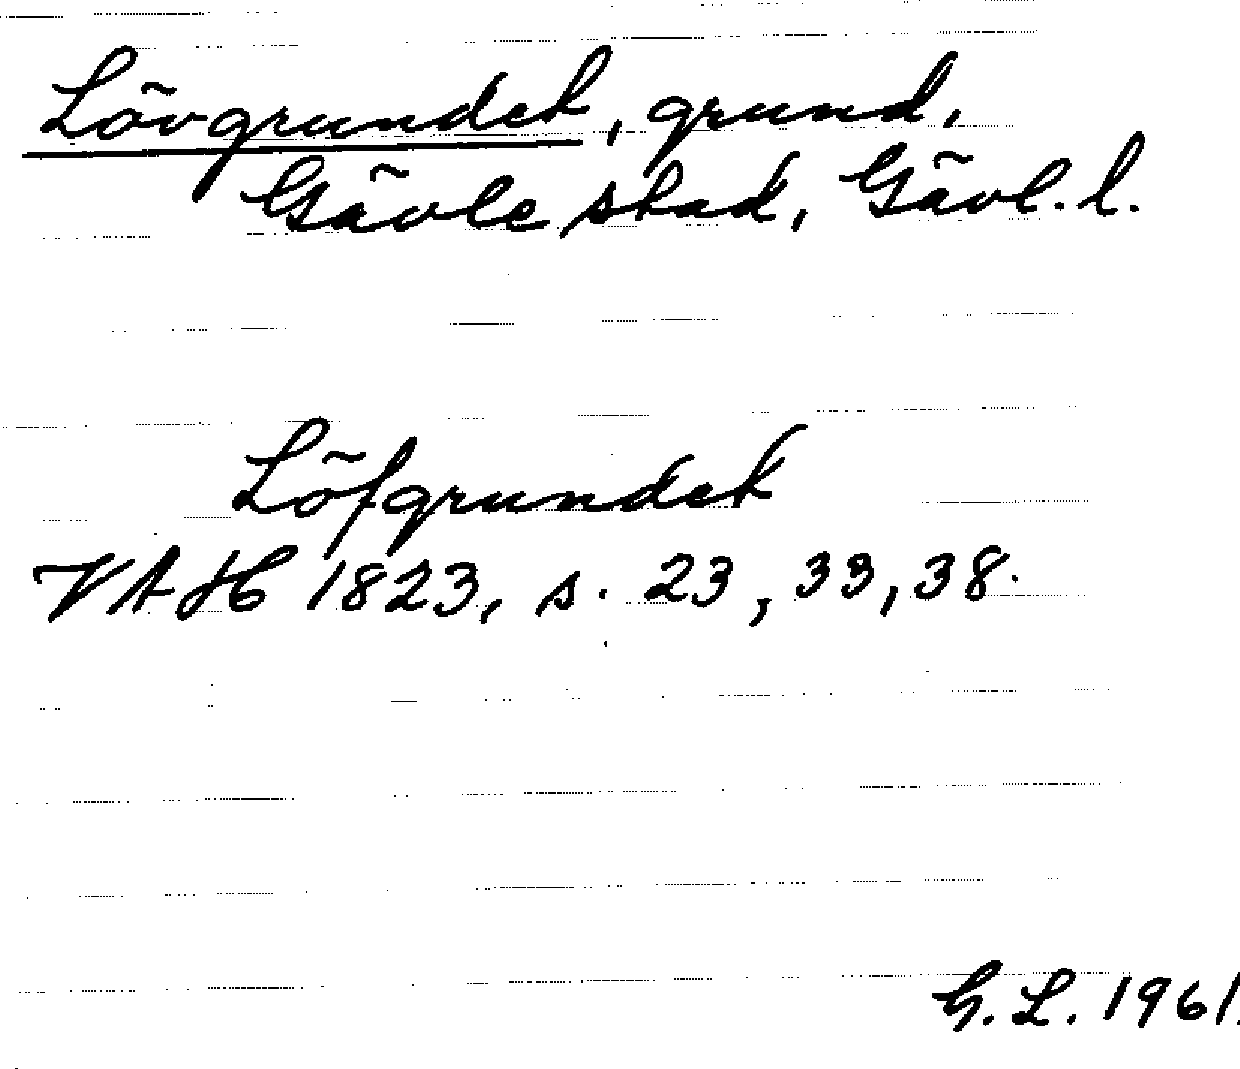 Lövgrundet, grund,
Gävle stad, Gävl. l.
Löfgrundet
VAH 1823, s. 23, 33, 38.
G. L. 1961.